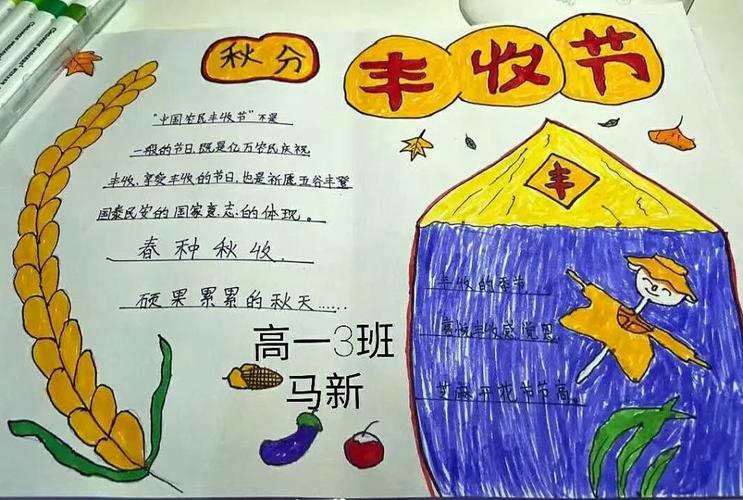 秋分
丰收节
"中国农民丰收节"不是
一般的节日,既是亿万农民庆祝
丰收、享受丰收的节日,也是祈愿五谷丰登
国泰民安的国家意志的体现。
春种秋收
硕果累累的秋天……
高一3班
马新
丰
丰收的季节
喜悦丰收感恩
芝麻开花节节高。